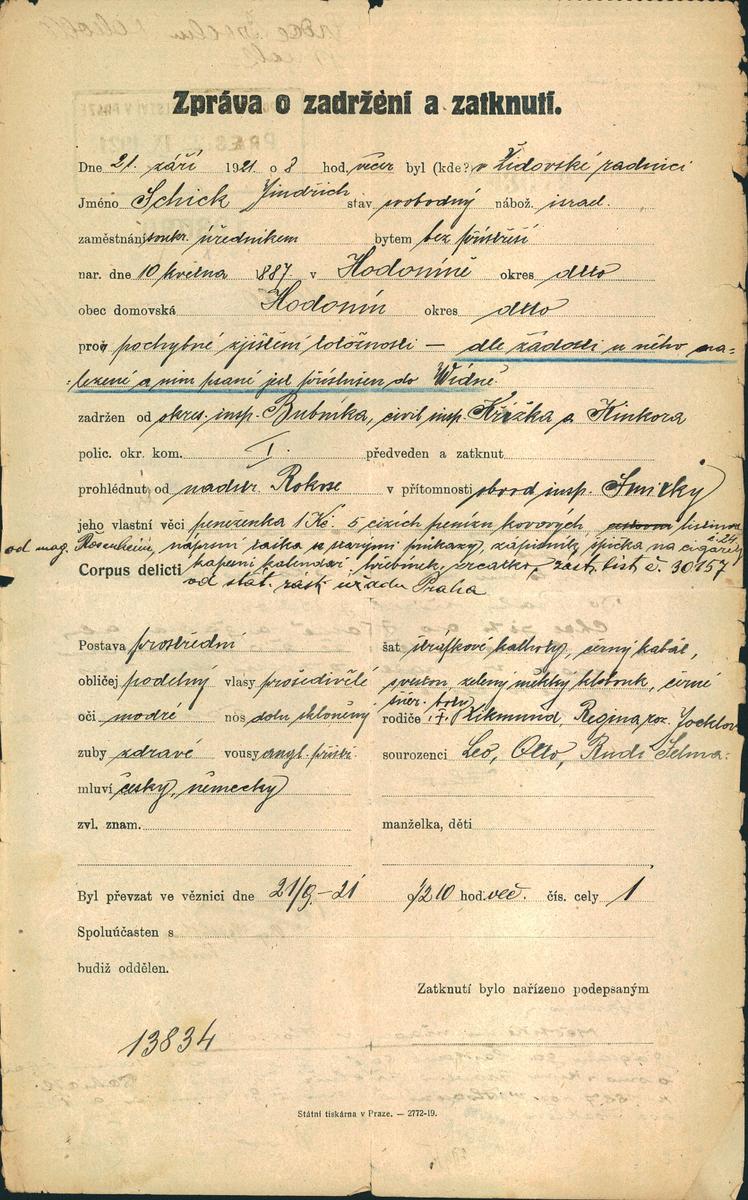 Zpráva o zadržení a zatknutí.
Dne 21. září 1921 o 8 hod. večer byl (kde? v Židovské radnici
Jméno Schick Jindřich stav svobodný nábož. israel.
zaměstnání soukr. úředníkem bytem bez přístřeší
nar. dne 10 května 1887 v Hodoníně okres dtto
obec domovská Hodonín okres dtto
pro pochybné zjištění totožnosti — dle žádosti u něho na-
lezené a ním psané jest příslušen do Wídně
zadržen od okres. insp. Bubníka, civil insp. Křížka a Kinkora
polic. okr. kom. I. předveden a zatknut
prohlédnut od nadstr. Rokose v přítomnosti obvod insp. Smirky
jeho vlastní věci peněženka 1 Kč. 5 cizích penízu kovových, listina
od mag. Rosenheim, náprsní taška se starými průkazy, zápisníky, špička na cigarety
Corpus delicti kapesní kalendář hřebínek, zrcátko, zast. list č. 30157
od stát. zást. úřadu Praha
Postava prostřední šat štráfkové kalhoty, černý kabát,
obličej podelný vlasy prošedivělé svetr, zelený měkký klobouk, černé
šněr. boty
oči modré nos dolu skloněný rodiče Zikmund, Regina roz. Jocklova
zuby zdravé vousy angl. přistř. sourozenci Leo, Otto, Rudi Selma.
mluví česky, německy
zvl. znam. manželka, děti
Byl převzat ve věznici dne 21/9.-21 o 1/2 10 hod. več. čís. cely 1
Spoluúčasten s
budiž oddělen.
Zatknutí bylo nařízeno podepsaným
13834
Státní tiskárna v Praze. — 2772-19.